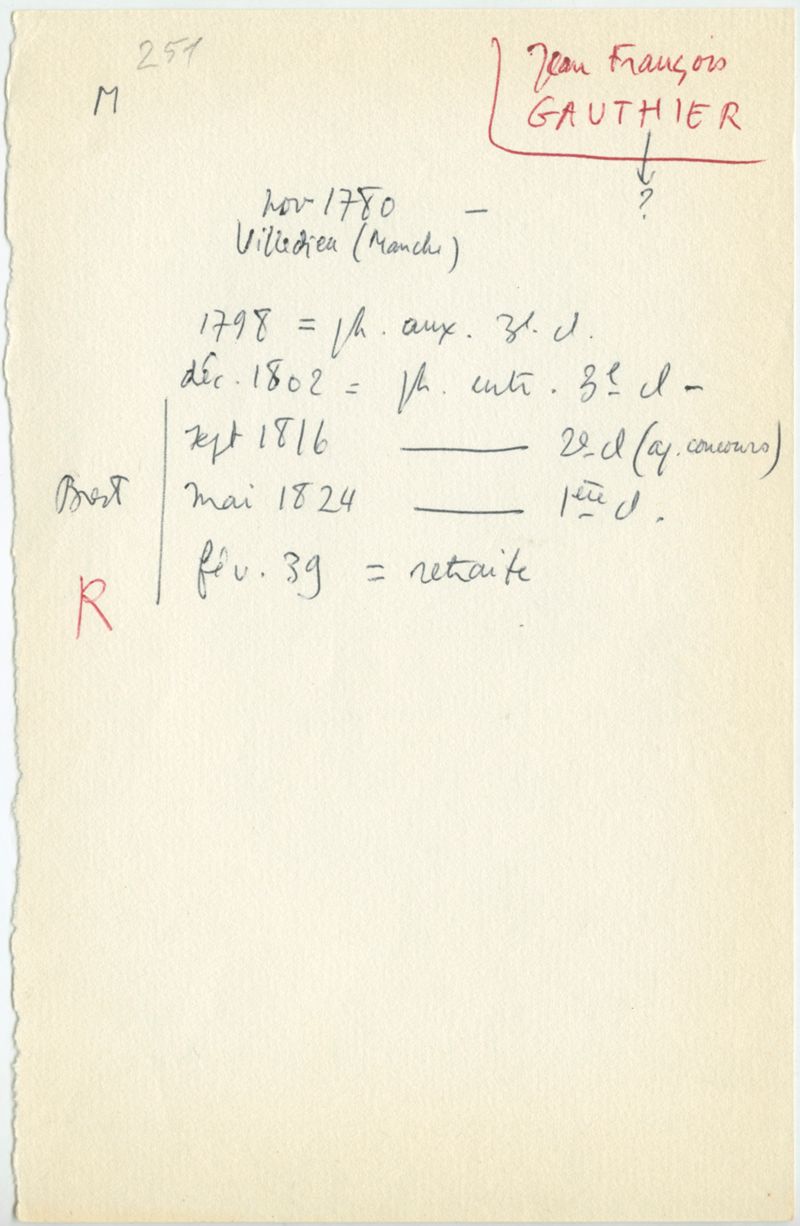 251
M
Jean François
GAUTHIER
?
nov 1780 —
Villedieu (Manche)
1798 = ph. aux. 3e cl.
déc. 1802 = ph. entr. 3e cl -
sept 1816 —— 2e cl (ap. concours)
Brest
mai 1824 —— 1ère cl.
fév. 39 = retraite
R